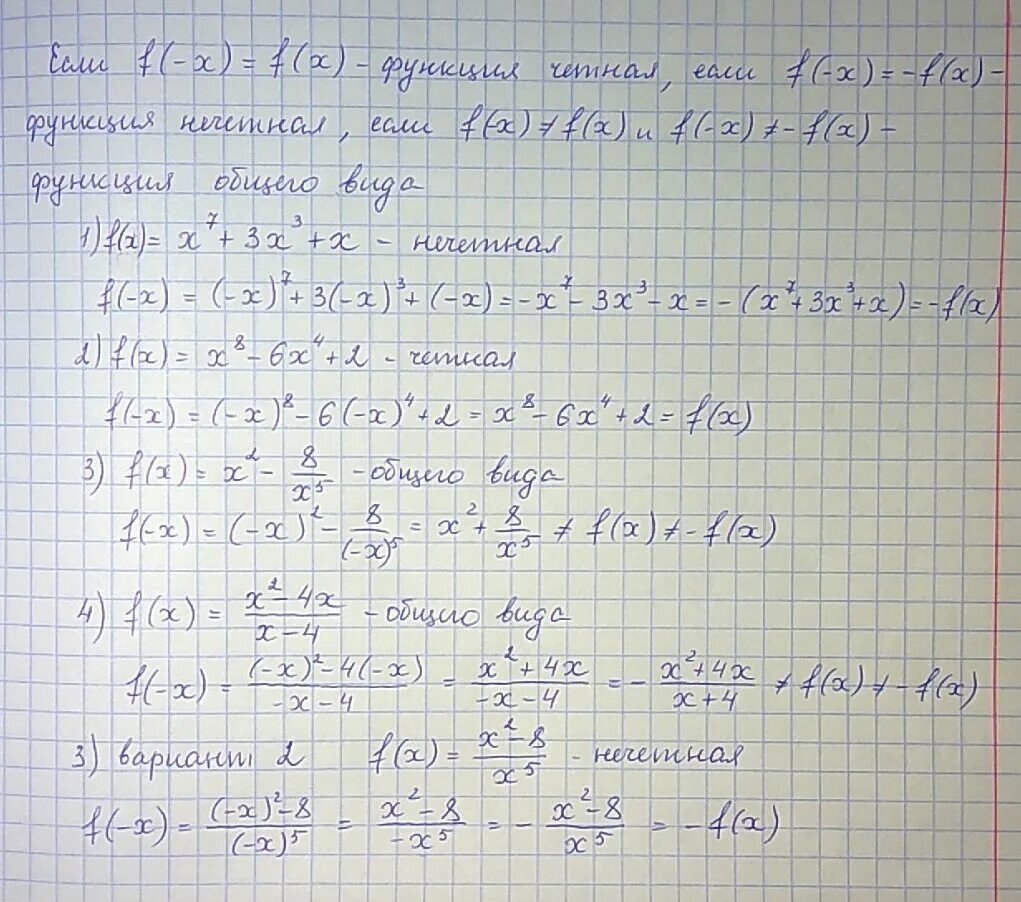 Если f(-x) = f(x) - функция четная, если f(-x) = -f(x) -
функция нечетная, если f(-x) ≠ f(x) и f(-x) ≠ - f(x) -
функция общего вида
1) f(x) = x⁷ + 3x³ + x - нечетная
f(-x) = (-x)⁷ + 3(-x)³ + (-x) = -x⁷ - 3x³ - x = - (x⁷ + 3x³ + x) = -f(x)
2) f(x) = x⁸ - 6x⁴ + 2 - четная
f(-x) = (-x)⁸ - 6(-x)⁴ + 2 = x⁸ - 6x⁴ + 2 = f(x)
3) f(x) = x² - 8/x⁵ - общего вида
f(-x) = (-x)² - 8/(-x)⁵ = x² + 8/x⁵ ≠ f(x) ≠ - f(x)
4) f(x) = (x² - 4x)/(x - 4) - общего вида
f(-x) = ((-x)² - 4(-x))/(-x - 4) = (x² + 4x)/(-x - 4) = - (x² + 4x)/(x + 4) ≠ f(x) ≠ - f(x)
3) вариант 2 f(x) = (x² - 8)/x⁵ - нечетная
f(-x) = ((-x)² - 8)/(-x)⁵ = (x² - 8)/(-x⁵) = - (x² - 8)/x⁵ = - f(x)